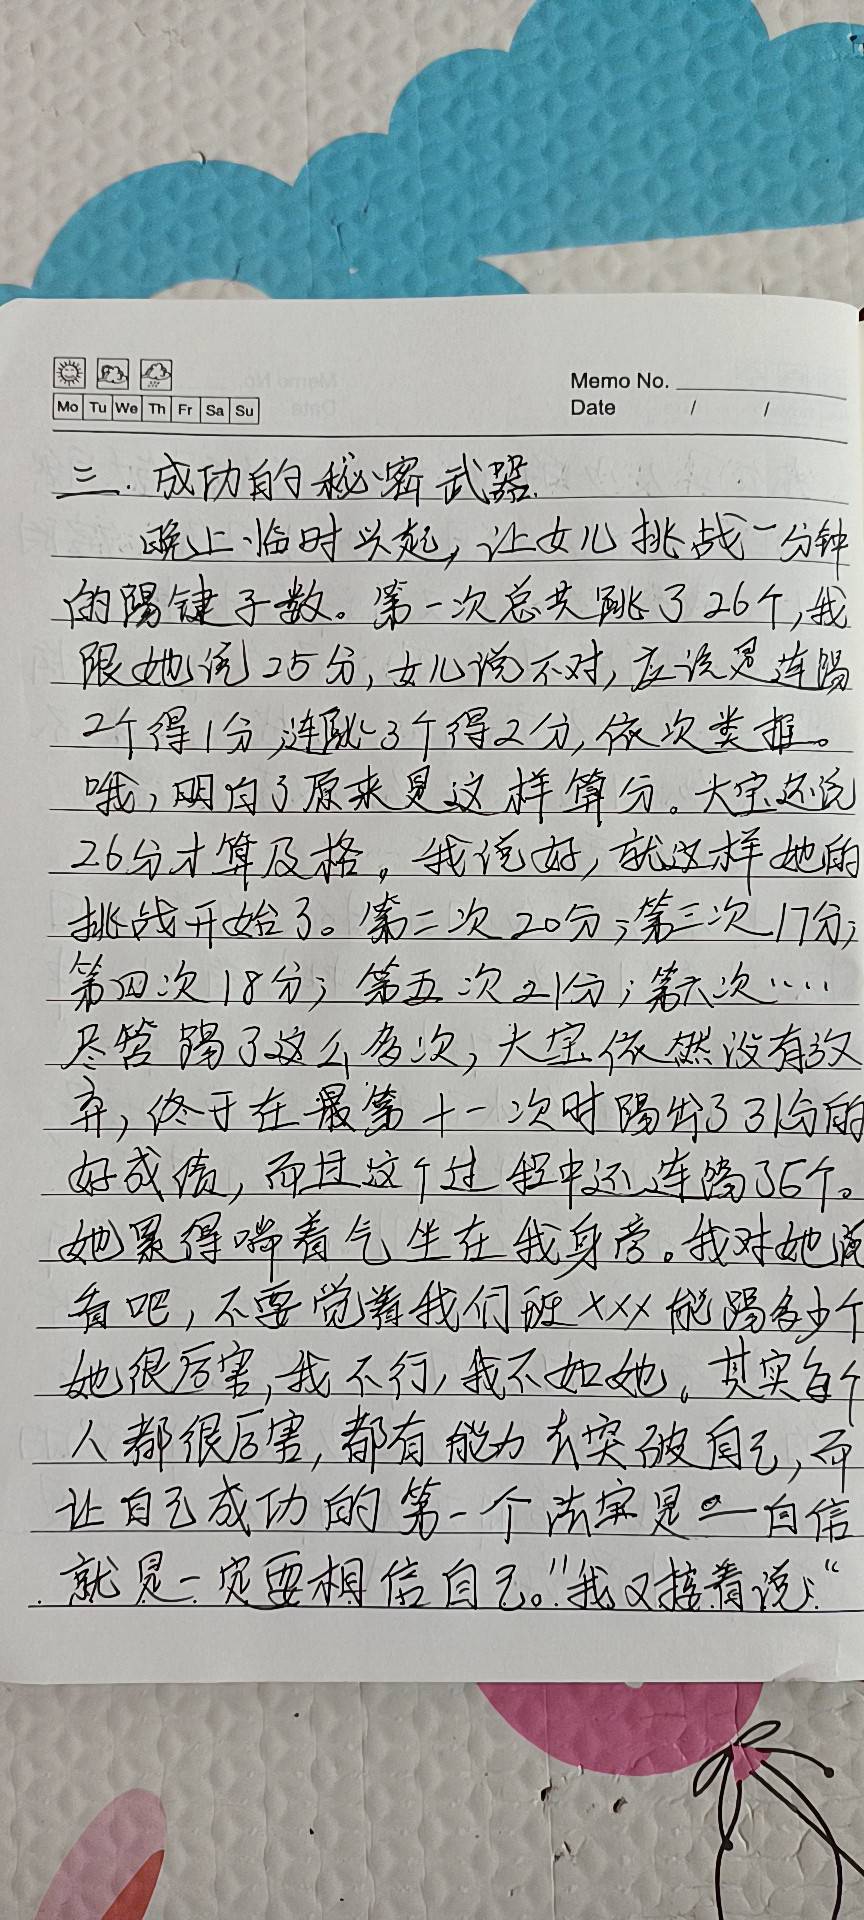 Memo No.
Mo Tu We Th Fr Sa Su
Date / /
三.成功的秘密武器.
晚上临时兴起，让女儿挑战一分钟
的踢键子数。第一次总共跳了26个，我
跟她说25分，女儿说不对，应该是连踢
2个得1分，连跳3个得2分，依次类推。
哦，明白了原来是这样算分。大宝还说
26分才算及格。我说好，就这样她的
挑战开始了。第二次20分；第三次17分；
第四次18分；第五次21分；第六次……
尽管踢了这么多次，大宝依然没有放
弃，终于在最第十一次时踢出了31分的
好成绩，而且这个过程中还连踢了6个。
她累得喘着气坐在我身旁。我对她说
看吧，不要觉着我们班×××能踢多少个
她很厉害，我不行，我不如她。其实每个
人都很厉害，都有能力去突破自己，而
让自己成功的第一个法宝是一自信
就是一定要相信自己。"我又接着说："